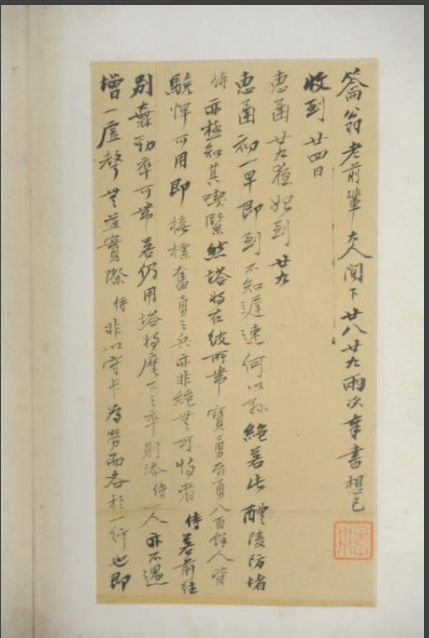 籥翁老前輩大人閣下廿八廿九兩次奉書想已
收到廿四日
惠函廿九夜始到廿九
惠函初一早即到不知遲速何以懸絕若此醴陵防堵
侍亦極知其喫緊然塔將在彼所帶寶勇辰勇八百餘人皆
驍悍可用即提標奮勇之兵亦非絕無可恃者侍若前往
別無勁率可帶若仍用塔將麾下之率則添侍一人亦不過
增一虛聲無益實際侍非以守卡為勞而吝於一行也即